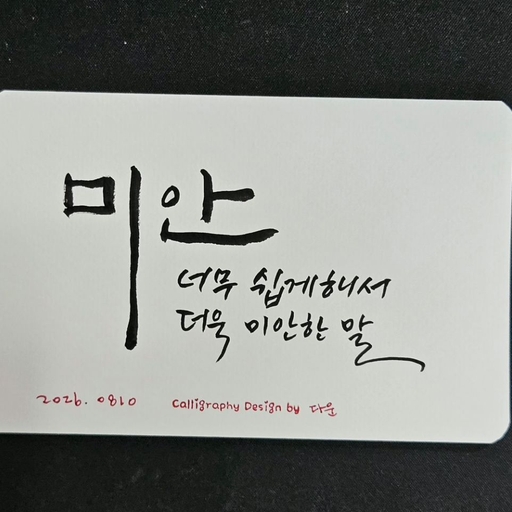 미안
너무 쉽게해서
더욱 미안한 말
2026. 0810 Calligraphy Design by 다운